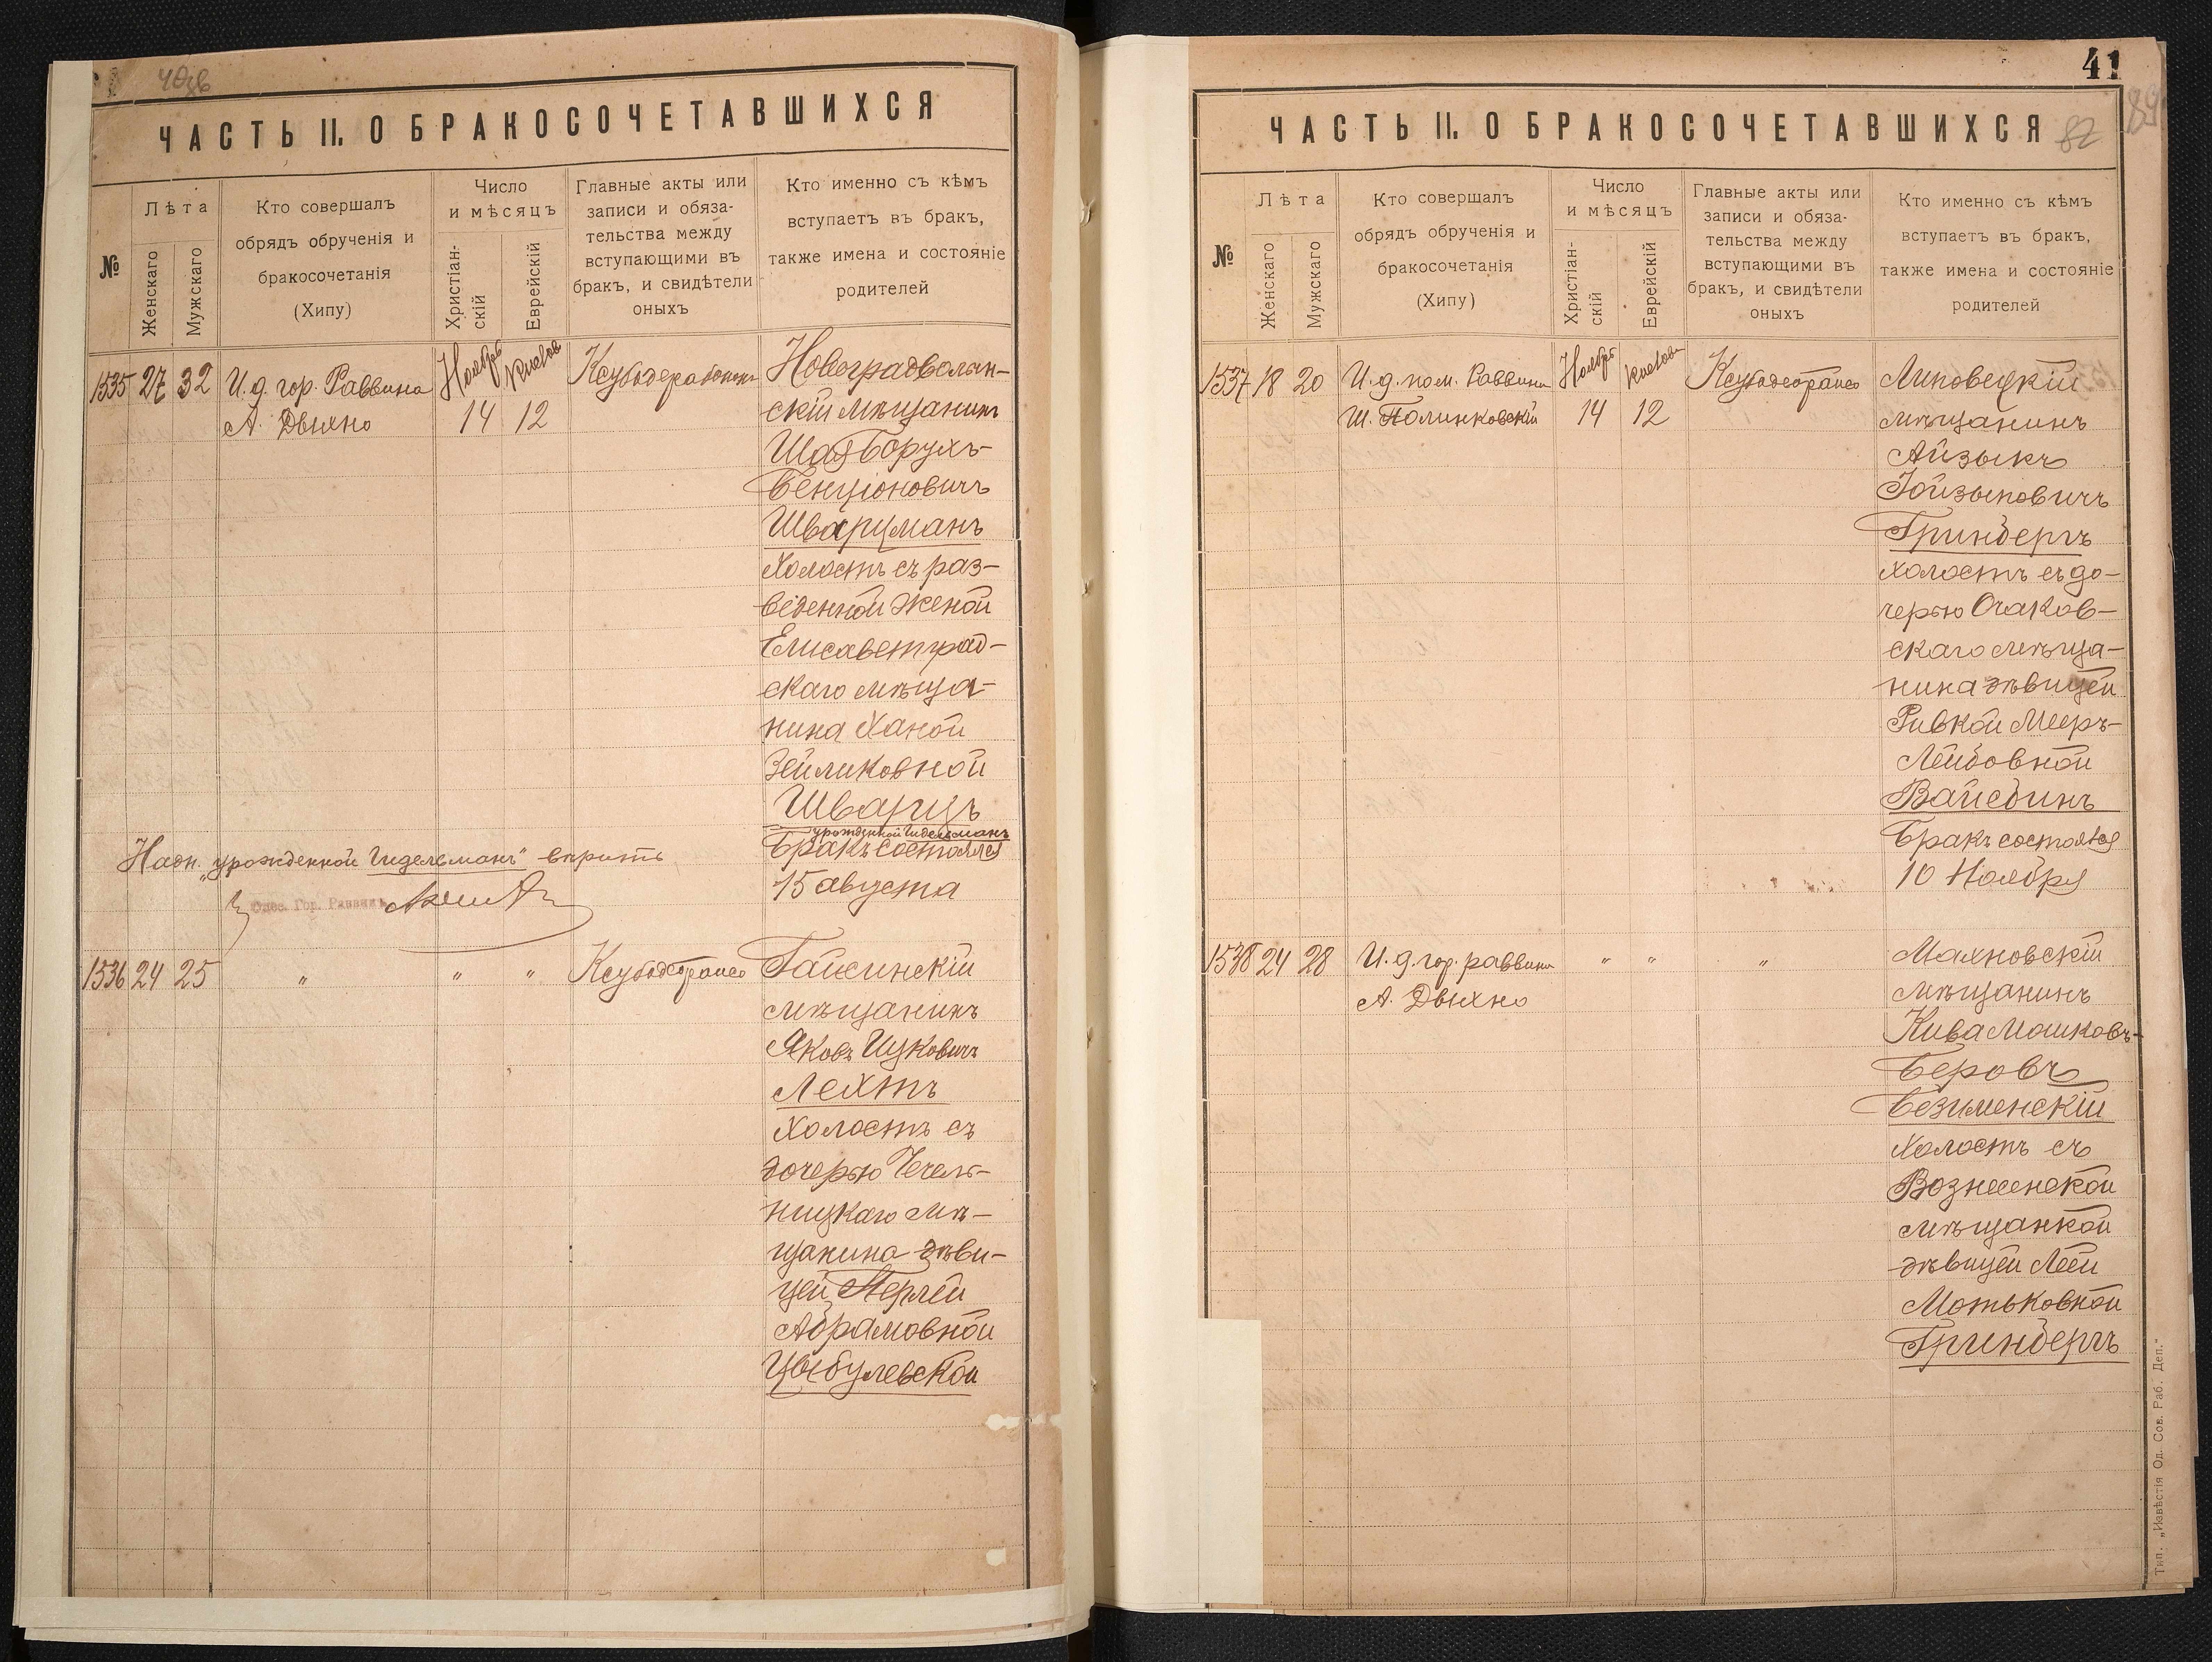 ЧАСТЬ II. О БРАКОСОЧЕТАВШИХСЯ
№
Лѣта
Женскаго
Мужскаго
Кто совершалъ
обрядъ обрученія и
бракосочетанія
(Хипу)
Число
и мѣсяцъ
Христіан-
скій
Еврейскій
Главные акты или
записи и обяза-
тельства между
вступающими въ
бракъ, и свидѣтели
оныхъ
Кто именно съ кѣмъ
вступаетъ въ бракъ,
также имена и состояніе
родителей
1535 27 32
И. д. гор. Раввина
А. Двихно
Ноябрь
14 12
Новоградволын-
скій мѣщанинъ
Шая Борухъ-
Бенціоновичъ
Шварцманъ
холостъ съ раз-
веденной женой
Елисаветград-
скаго мѣща-
нина Ханой
Зейликовной
Шварцъ
урожденной Гидельманъ
Бракъ состоялся
15 августа
Надп. „урожденной Гидельманъ" вѣрить
Одес. Гор. Раввинъ
1536 24 25 " " "
Гайсинскій
мѣщанинъ
Яковъ Ицковичъ
Лехтъ
холостъ съ
дочерью Чечель-
ницкаго мѣ-
щанина дѣви-
цей Перлей
Абрамовной
Цыбулевской
41
82
89
ЧАСТЬ II. О БРАКОСОЧЕТАВШИХСЯ
№
Лѣта
Женскаго
Мужскаго
Кто совершалъ
обрядъ обрученія и
бракосочетанія
(Хипу)
Число
и мѣсяцъ
Христіан-
скій
Еврейскій
Главные акты или
записи и обяза-
тельства между
вступающими въ
бракъ, и свидѣтели
оныхъ
Кто именно съ кѣмъ
вступаетъ въ бракъ,
также имена и состояніе
родителей
1537 18 20
И. д. пом. Раввина
Ш. Полинковскій
Ноябрь
14 12
Липовецкій
мѣщанинъ
Айзыкъ
Іойзыповичъ
Гринбергъ
холостъ съ до-
черью Очаков-
скаго мѣща-
нина дѣвицей
Ривкой Мееръ-
Лейбовной
Вайсбинъ
Бракъ состоялся
10 Ноября
1538 24 28
И. д. гор. раввина
А. Двихно
" " "
Махновскій
мѣщанинъ
Кива Мошковъ-
Беровъ
Безименскій
холостъ съ
Вознесенской
мѣщанкой
дѣвицей Леей
Мотьковной
Гринбергъ
Тип. „Извѣстія Од. Сов. Раб. Деп."